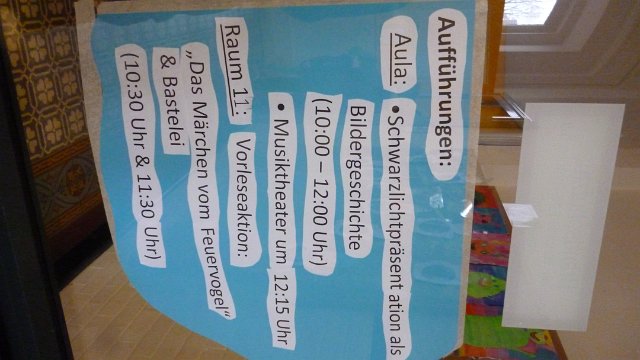 Aufführungen:
Aula: • Schwarzlichtpräsent ation als
Bildergeschichte
(10:00 – 12:00 Uhr)
• Musiktheater um 12:15 Uhr
Raum 11: Vorleseaktion:
„Das Märchen vom Feuervogel“
& Bastelei
(10:30 Uhr & 11:30 Uhr)